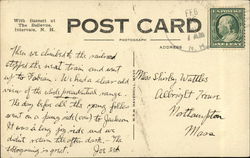 With Bassett at
The Bellevue,
Intervale, N. H.
POST CARD
PHOTOGRAPHY
ADDRESS
FEB
N. H.
Then we climbed the railroad
stopped the next train and went
up to Fabian. We had a clear
view of the whole presidential range.
The day before all the young folks
went on a pung ride (over) to Jackson
It was a long joy ride and we
didn't return till after dark. The
sleighing is great. Joe
Miss Shirley Wattles
Albright House
Northampton
Mass